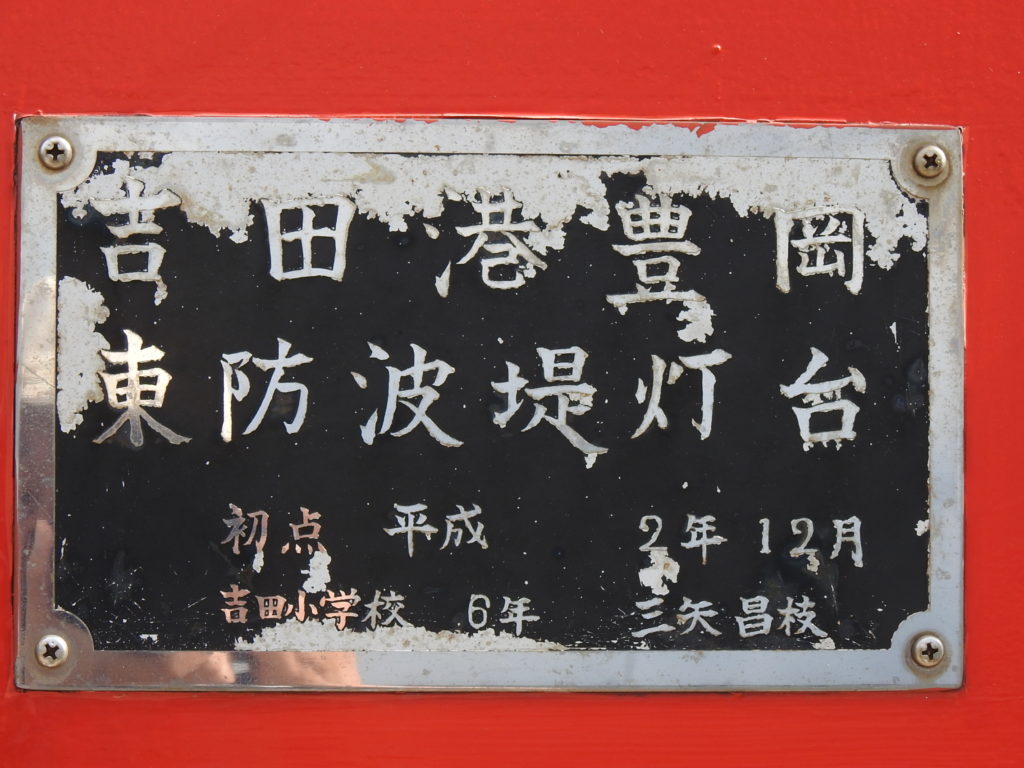 吉田港豊岡
東防波堤灯台
初点 平成 2年 12月
吉田小学校 6年 三矢昌枝